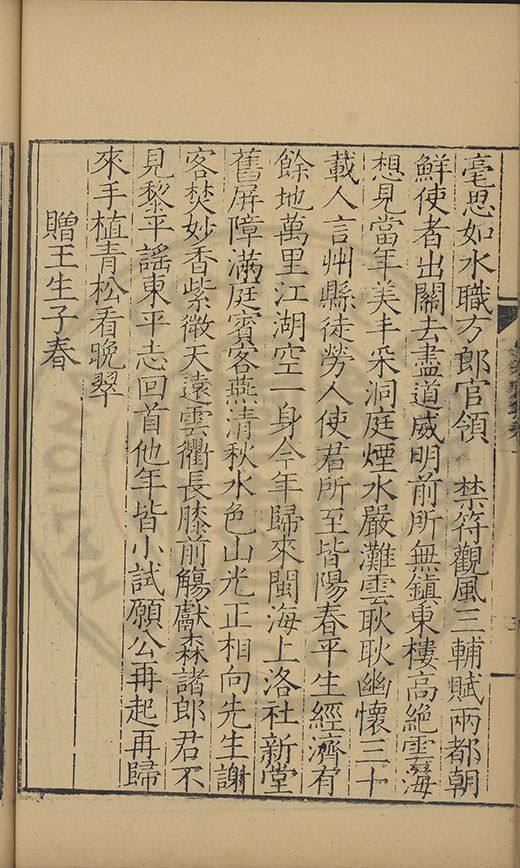 毫思如水職方郎官領　禁符觀風三輔賦兩都朝
鮮使者出關去盡道威明前所無鎮東樓高絕雲海
想見當年美丰采洞庭煙水嚴灘雲耿耿幽懷三十
載人言州縣徒勞人使君所至皆陽春平生經濟有
餘地萬里江湖空一身今年歸來閩海上洛社新堂
舊屏障滿庭賓客燕清秋水色山光正相向先生謝
客焚妙香紫微天遠雲衢長膝前觴獻森諸郎君不
見黎平謠東平志回首他年皆小試願公再起再歸
來手植青松看晚翠
贈王生子春